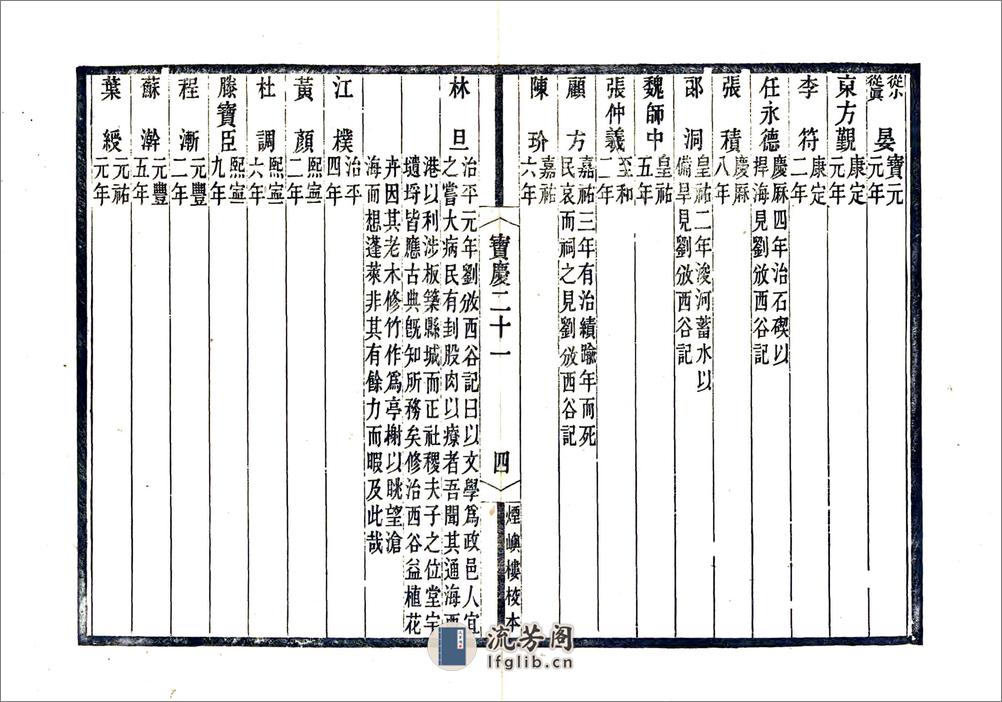 從小從真 晏 寶元元年
東方觀 康定元年
李符 康定二年
任永德 慶厤四年治石碶以捍海見劉攽西谷記
張積 慶厤八年
邵洞 皇祐二年浚河蓄水以備旱見劉攽西谷記
魏師中 皇祐五年
張仲羲 至和二年
顧方 嘉祐三年有治績踰年而死民哀而祠之見劉攽西谷記
陳玠 嘉祐六年
寶慶二十一 四 煙嶼樓校本
林旦 治平元年劉攽西谷記曰以文學爲政邑人宜
之嘗大病民有刲股肉以療者吾聞其通海西
港以利涉板築縣城而正社稷夫子之位堂宇
壝埒皆應古典旣知所務矣修治西谷益植花
卉因其老木修竹作爲亭榭以眺望滄
海而想蓬萊非其有餘力而暇及此哉
江樸 治平四年
黃顏 熙寧二年
杜調 熙寧六年
滕寶臣 熙寧九年
程漸 元豐二年
蘇澣 元豐五年
葉綬 元祐元年
流芳阁
lfglib.cn